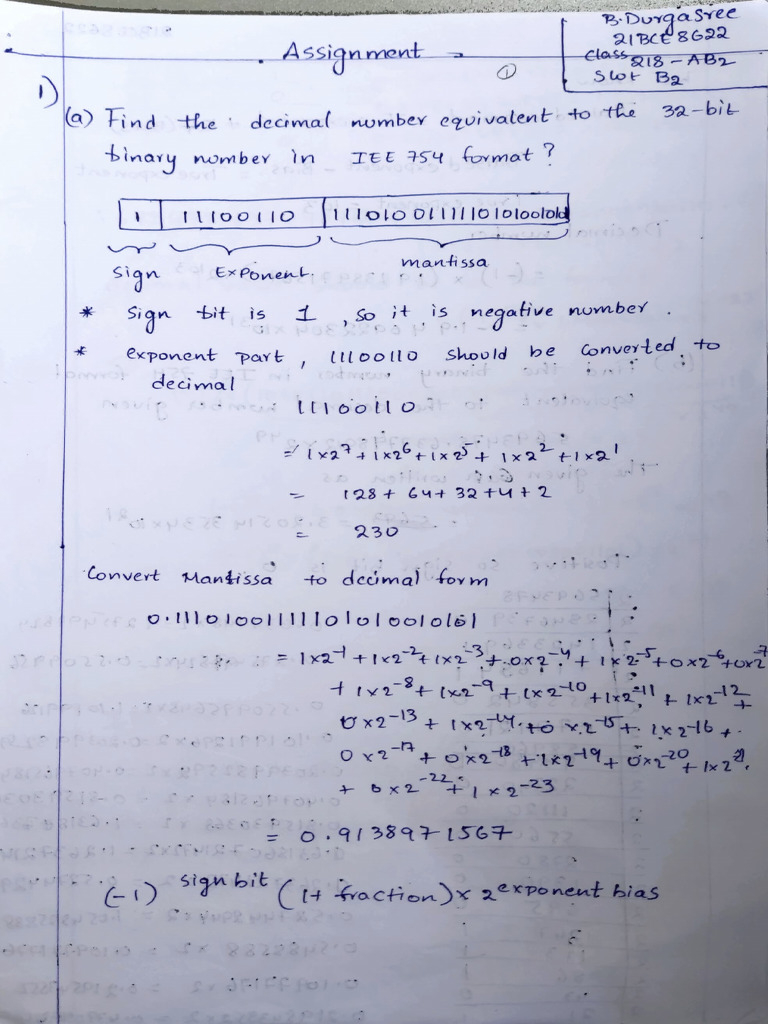 B. DurgaSree
21BCE8622
Class 218 - AB2
Slot B2
Assignment
①
1)
(a) Find the decimal number equivalent to the 32-bit
binary number in IEE 754 format?
1 11100110
sign Exponent mantissa
* sign bit is 1, so it is negative number.
* exponent part, 11100110 should be converted to
decimal
11100110
= 1x2^7 + 1x2^6 + 1x2^5 + 1x2^2 + 1x2^1
= 128 + 64 + 32 + 4 + 2
= 230
Convert Mantissa to decimal form
0.11101001111101010010101
= 1x2^-1 + 1x2^-2 + 1x2^-3 + 0x2^-4 + 1x2^-5 + 0x2^-6 + 0x2^-7
+ 1x2^-8 + 1x2^-9 + 1x2^-10 + 1x2^-11 + 1x2^-12 +
0x2^-13 + 1x2^-14 + 0x2^-15 + 1x2^-16 +
0x2^-17 + 0x2^-18 + 1x2^-19 + 0x2^-20 + 1x2^-21
+ 0x2^-22 + 1x2^-23
= 0.9138971567
(-1)^sign bit (1+ fraction) x 2^exponent bias